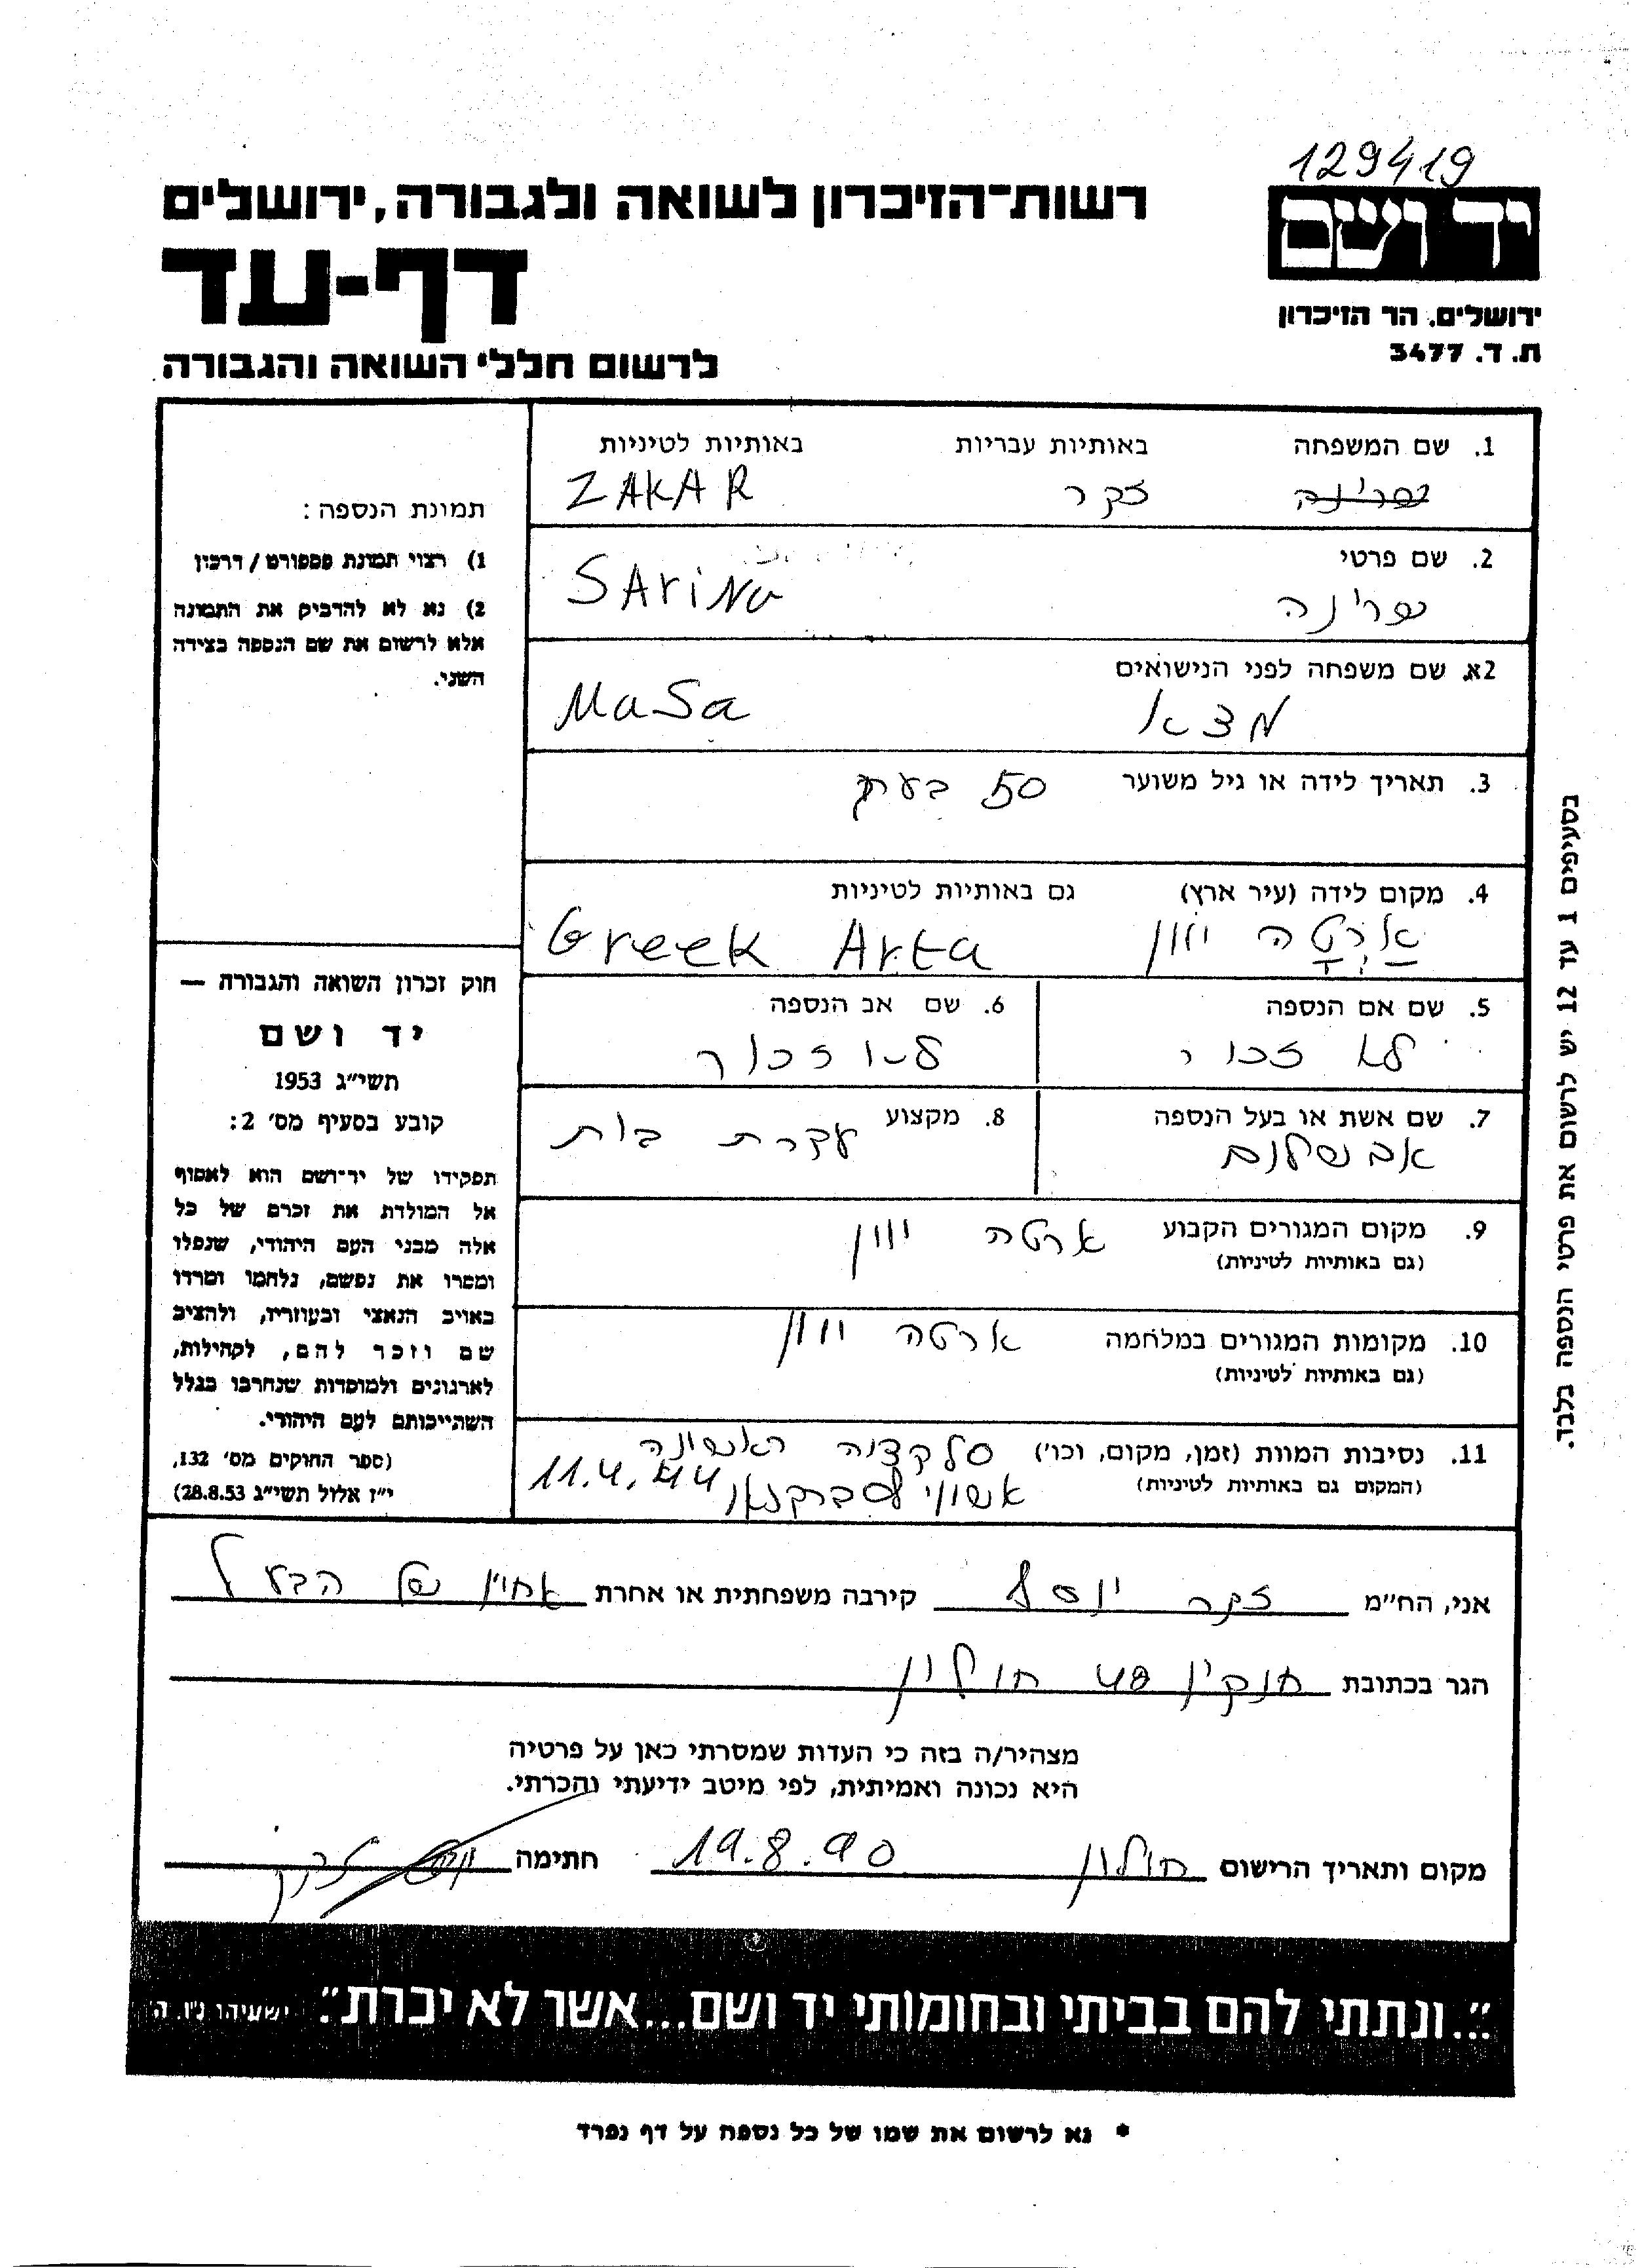 129419
רשות־הזיכרון לשואה ולגבורה, ירושלים
יד ושם
דף-עד
ירושלים. הר הזיכרון
ת. ד. 3477
לרשום חללי השואה והגבורה
1. שם המשפחה באותיות עבריות באותיות לטיניות
שרינה זקר ZAKAR
2. שם פרטי
שרינה SAriNa
2א. שם משפחה לפני הנישואים
מצא MaSa
3. תאריך לידה או גיל משוער 50 בערך
4. מקום לידה (עיר ארץ) גם באותיות לטיניות
ארטה יוון Greek Arta
5. שם אם הנספה
לא זכור
6. שם אב הנספה
לא זכור
7. שם אשת או בעל הנספה
אבשלום
8. מקצוע עקרת בית
9. מקום המגורים הקבוע ארטה יוון
(גם באותיות לטיניות)
10. מקומות המגורים במלחמה ארטה יוון
(גם באותיות לטיניות)
11. נסיבות המוות (זמן, מקום, וכו׳) סלקציה ראשונה
(המקום גם באותיות לטיניות) 11.4.44
תמונת הנספה:
1) רצוי תמונת פספורט / דרכון
2) נא לא להדביק את התמונה
אלא לרשום את שם הנספה בצידה
השני.
חוק זכרון השואה והגבורה —
יד ושם
תשי״ג 1953
קובע בסעיף מס׳ 2:
תפקידו של יד־ושם הוא לאסוף
אל המולדת את זכרם של כל
אלה מבני העם היהודי, שנפלו
ומסרו את נפשם, נלחמו ומרדו
באויב הנאצי ובעוזריו, ולהציב
שם וזכר להם, לקהילות,
לארגונים ולמוסדות שנחרבו בגלל
השתייכותם לעם היהודי.
(ספר החוקים מס׳ 132,
י״ז אלול תשי״ג 28.8.53)
בסעיפים 1 עד 12 יש לרשום את פרטי הנספה בלבד.
אני, הח״מ זקר יוסף קירבה משפחתית או אחרת אחיין של הבעל
הגר בכתובת חנקין 48 חולון
מצהיר/ה בזה כי העדות שמסרתי כאן על פרטיה
היא נכונה ואמיתית, לפי מיטב ידיעתי והכרתי.
מקום ותאריך הרישום חולון 19.8.90 חתימה
״...ונתתי להם בביתי ובחומותי יד ושם...אשר לא יכרת״. ישעיהו נ״ו. ה
* נא לרשום את שמו של כל נספה על דף נפרד